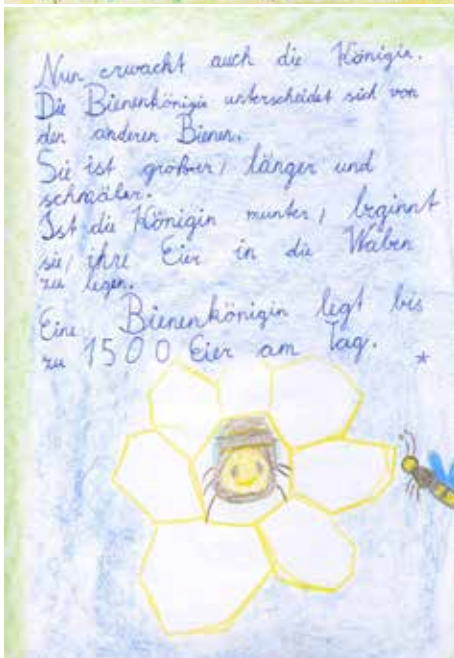 Nun erwacht auch die Königin.
Die Bienenkönigin unterscheidet sich von
den anderen Bienen.
Sie ist größer, länger und
schmäler.
Ist die Königin munter, beginnt
sie, ihre Eier in die Waben
zu legen.
Eine Bienenkönigin legt bis
zu 1500 Eier am Tag. *